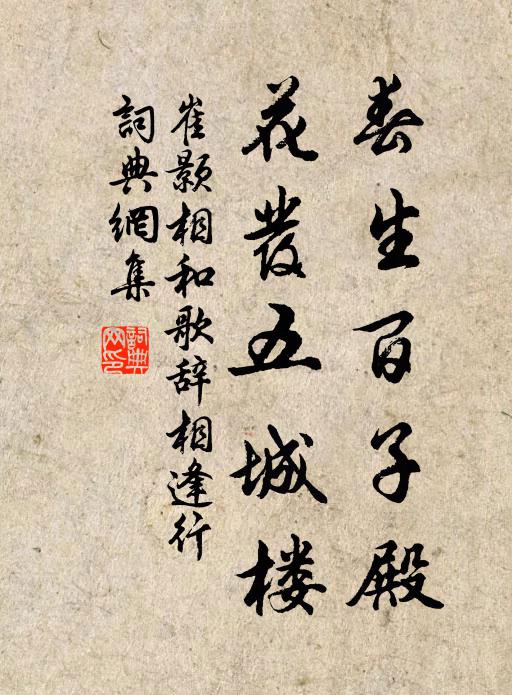 春生百子殿
花發五城楼
崔颢相和歌辞相逢行
詞典網集
詞典
网印